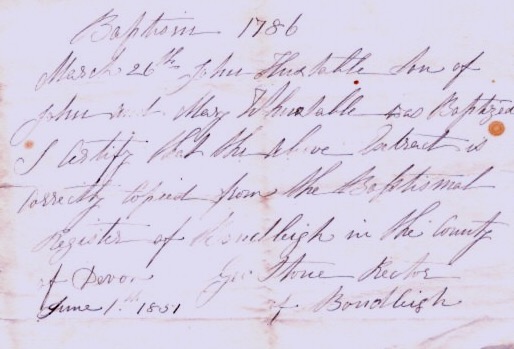 Baptism 1786
March 26th John Huxtable Son of
John and Mary Huxtable was Baptized
I Certify that the above Extract is
Correctly Copied from the Baptismal
Register of Bondleigh in the County
of Devon Stone Rector
June 1st 1851 of Bondleigh